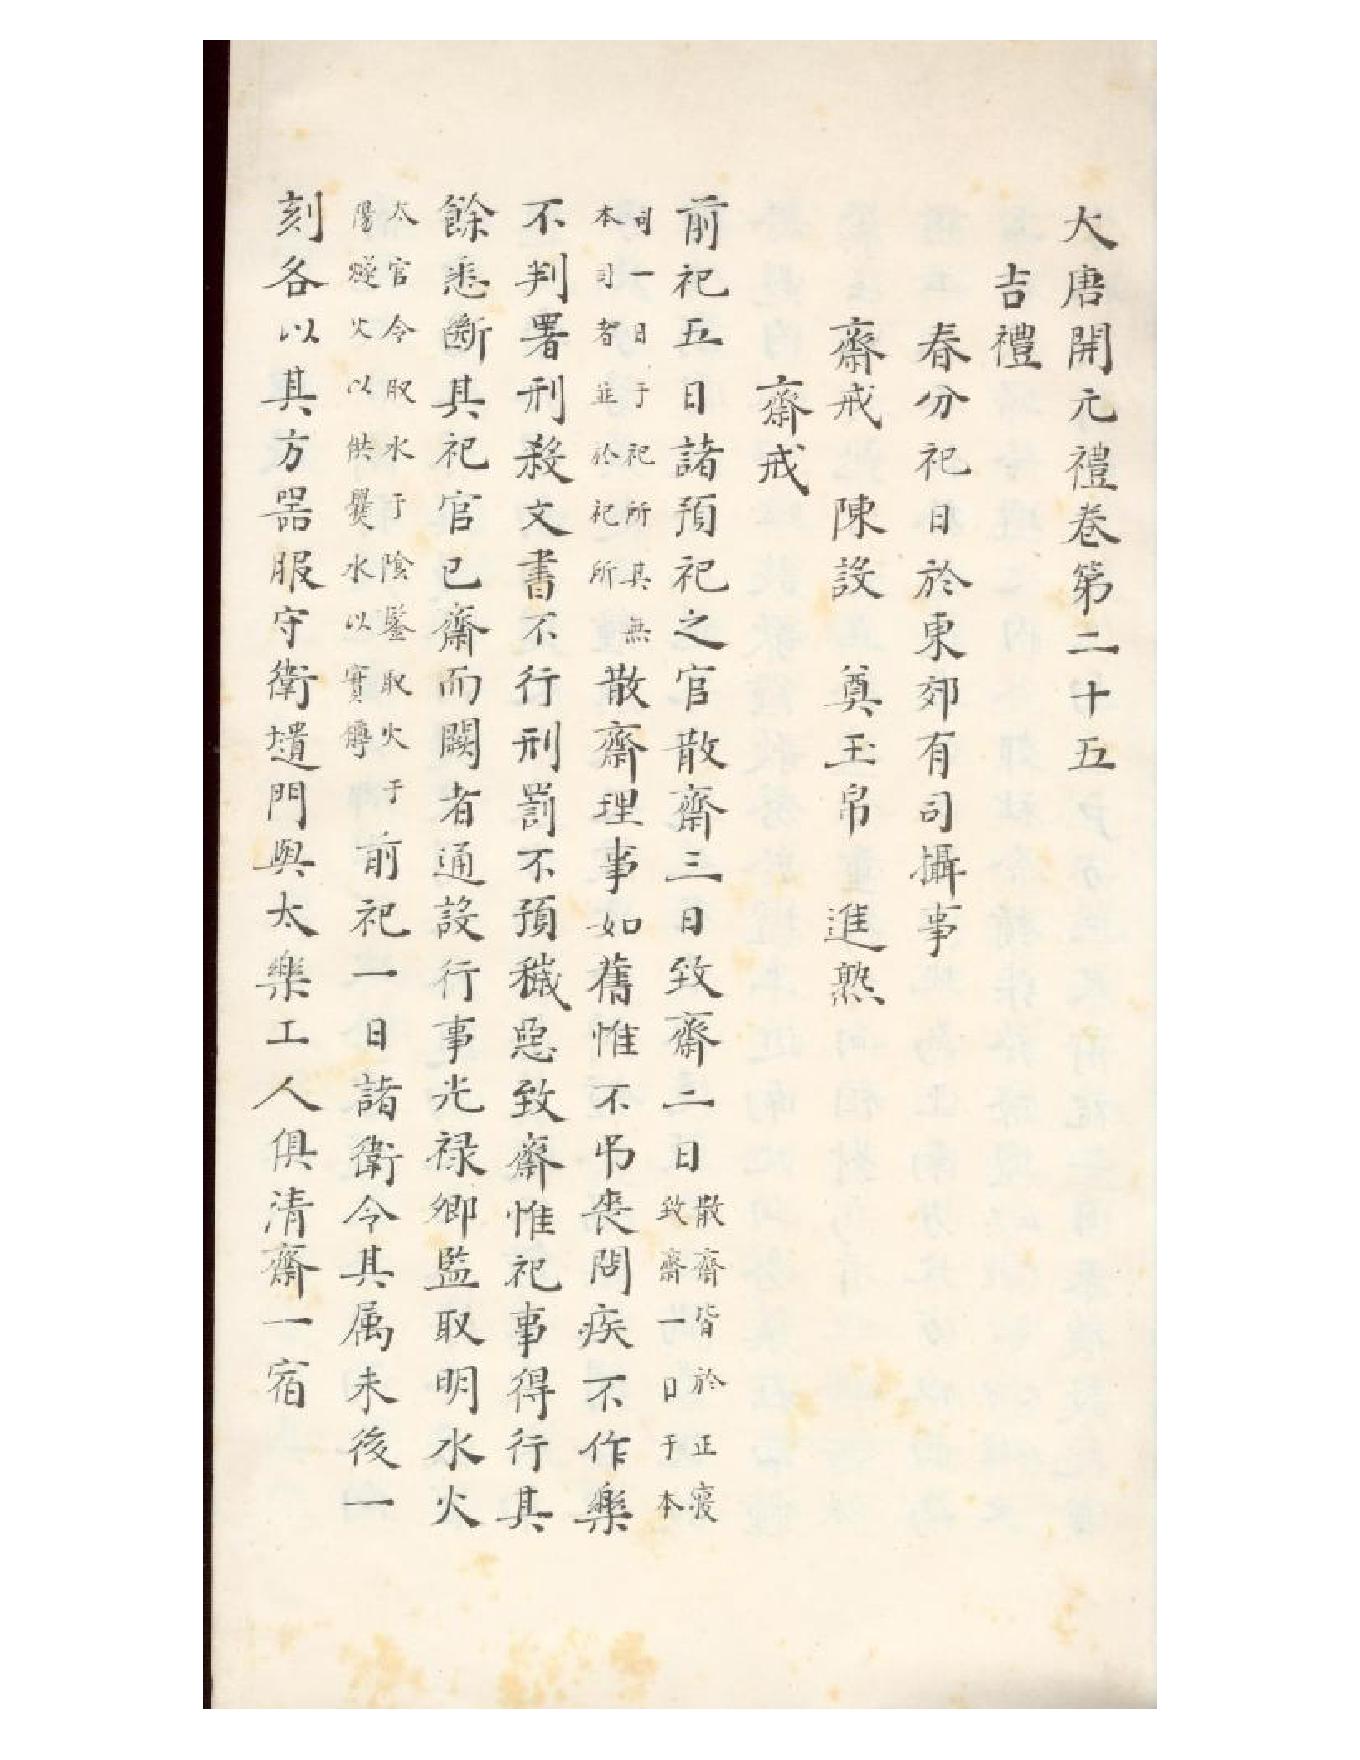 大唐開元禮卷第二十五
吉禮
春分祀日於東郊有司攝事
齋戒 陳設 奠玉帛 進熟
齋戒
前祀五日諸預祀之官散齋三日致齋二日散齋皆於正寢
致齋一日于本
司一日于祀所其無
本司者並於祀所散齋理事如舊惟不弔喪問疾不作樂
不判署刑殺文書不行刑罰不預穢惡致齋惟祀事得行其
餘悉斷其祀官已齋而闕者通設行事光祿卿監取明水火
太官令取水于陰鑒取火于
陽燧火以供爨水以實罇前祀一日諸衛令其属未後一
刻各以其方器服守衛壝門與太樂工人俱清齋一宿